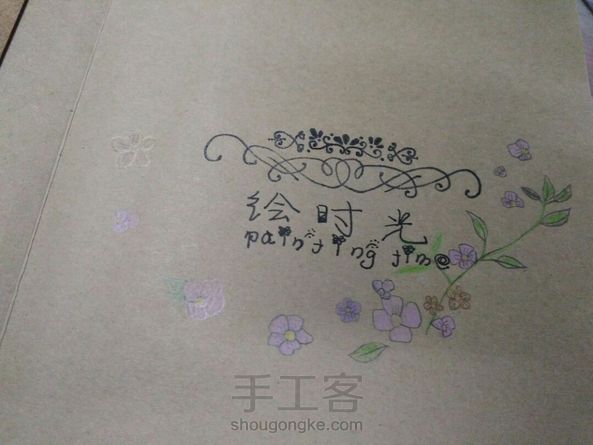 绘时光
painting time
手工客
shougongke.com